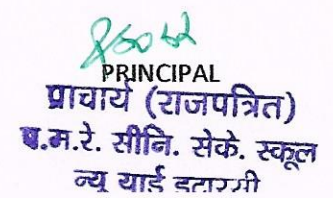 PRINCIPAL
प्राचार्य (राजपत्रित)
प.म.रे. सीनि. सेके. स्कूल
न्यू यार्ड इटारसी